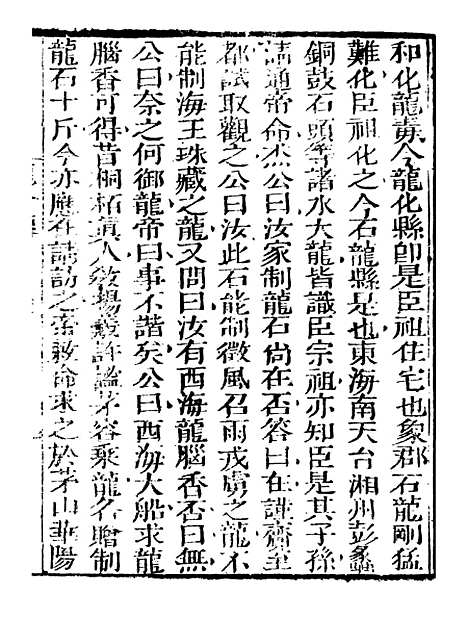 和化龍毒今龍化縣即是臣祖住宅也象郡石龍剛猛
難化臣祖化之今石龍縣是也東海南天台湘州彭蠡
銅鼓石頭等諸水大龍皆識臣宗祖亦知臣是其子孫
請通帝命杰公曰汝家制龍石尙在否答曰在謹齋至
都試取觀之公曰汝此石能制微風召雨戎虜之龍不
能制海王珠藏之龍又問曰汝有西海龍腦香否曰無
公曰奈之何御龍帝曰事不諧矣公曰西海大船求龍
腦香可得昔桐柏真人敎楊羲許謐茅容乘龍各贈制
龍石十斤今亦應在請訪之帝敕命求之於茅山華陽